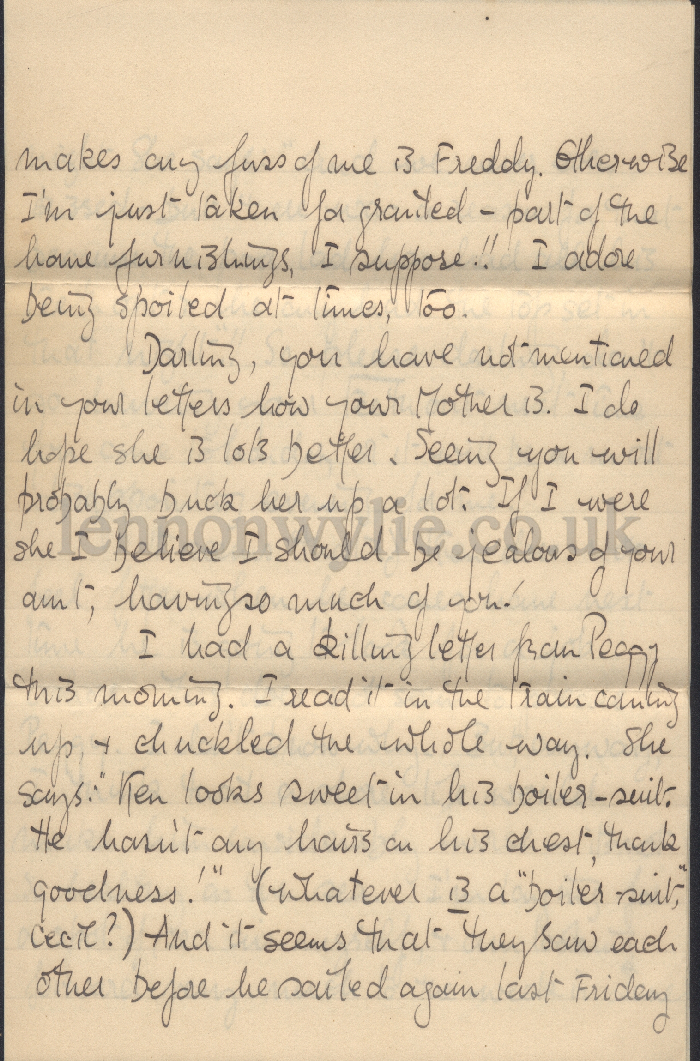 makes any fuss of me is Freddy. Otherwise
I'm just taken for granted - part of the
home furnishings, I suppose!! I adore
being spoiled at times, too.
Darling, you have not mentioned
in your letters how your Mother is. I do
hope she is lots better. Seeing you will
probably buck her up a lot. If I were
lennonwylie.co.uk
she I believe I should be jealous of your
aunt, having so much of you!
I had a killing letter from Peggy
this morning. I read it in the train coming
up, & chuckled the whole way. She
says:" Ken looks sweet in his boiler-suit.
He hasn't any hairs on his chest, thank
goodness!" (Whatever is a "boiler-suit,"
Cecil?) And it seems that they saw each
other before he sailed again last Friday